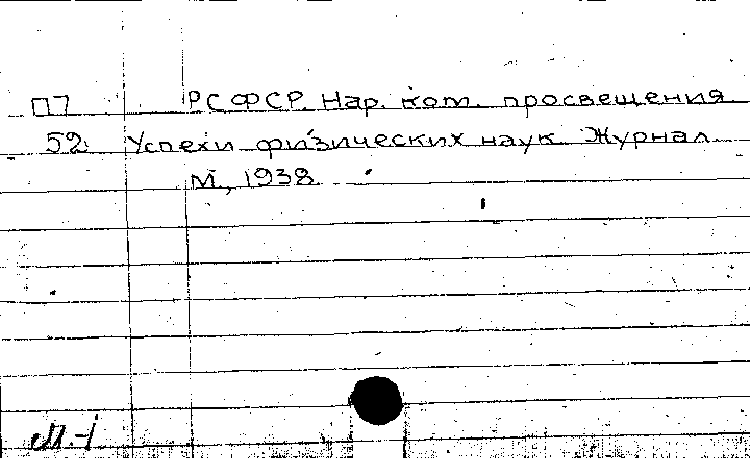 П7 РСФСР. Нар. ком. просвещения
52 Успехи физических наук. Журнал.
М., 1938
М.-1